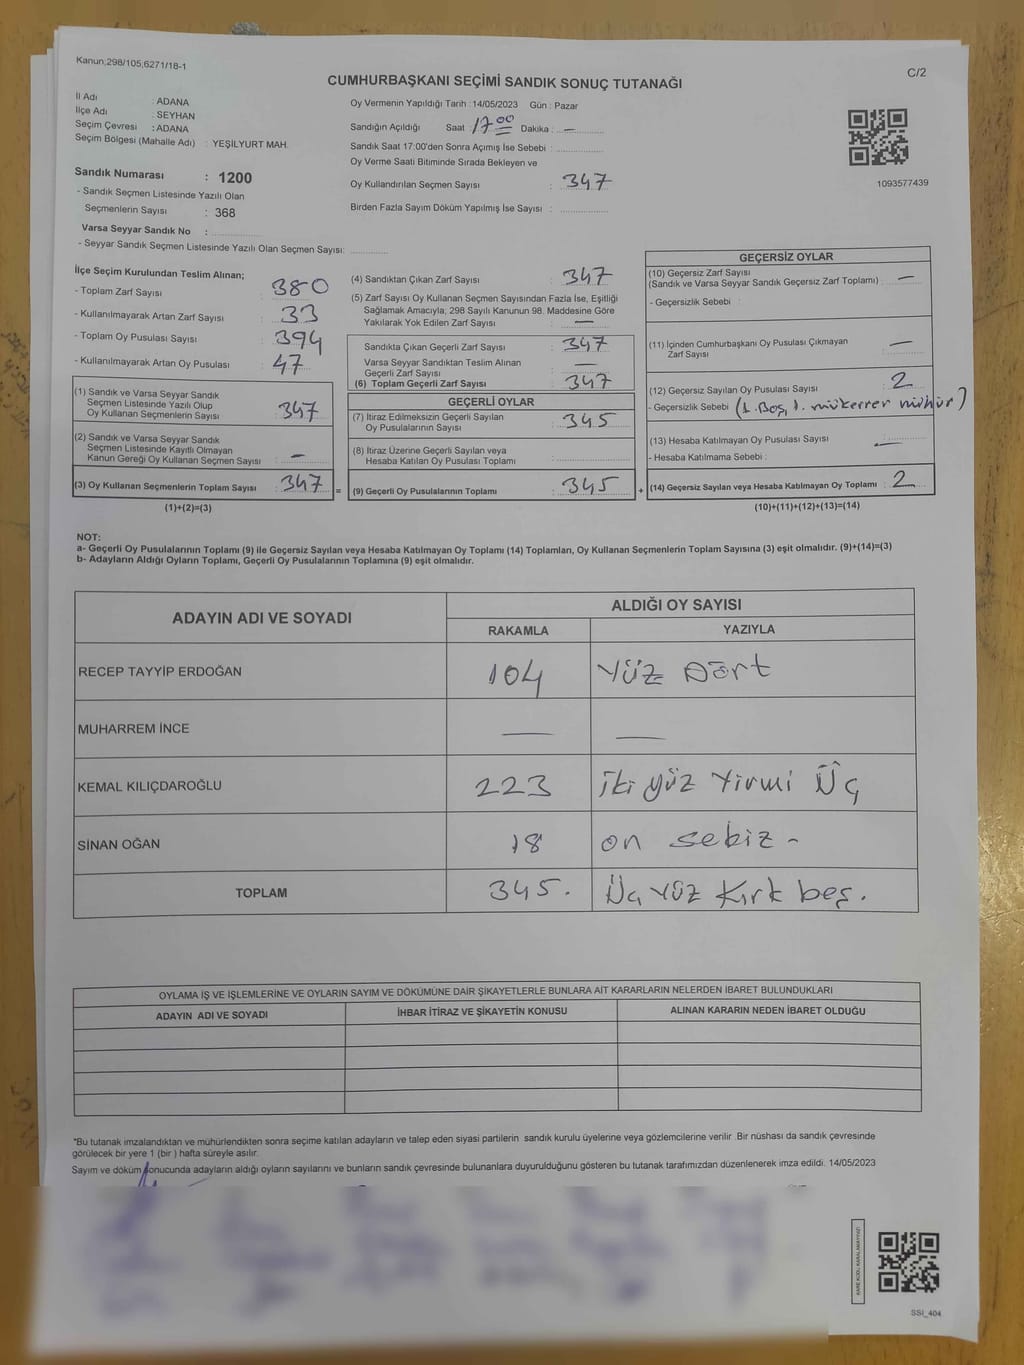 Kanun;298/105;6271/18-1
C/2
CUMHURBAŞKANI SEÇİMİ SANDIK SONUÇ TUTANAĞI
İl Adı : ADANA
İlçe Adı : SEYHAN
Seçim Çevresi : ADANA
Seçim Bölgesi (Mahalle Adı) : YEŞİLYURT MAH.
Sandık Numarası : 1200
- Sandık Seçmen Listesinde Yazılı Olan
Seçmenlerin Sayısı : 368
Varsa Seyyar Sandık No :
- Seyyar Sandık Seçmen Listesinde Yazılı Olan Seçmen Sayısı:
Oy Vermenin Yapıldığı Tarih : 14/05/2023 Gün : Pazar
Sandığın Açıldığı Saat : 17 00 Dakika : —
Sandık Saat 17:00'den Sonra Açımış İse Sebebi :
Oy Verme Saati Bitiminde Sırada Bekleyen ve
Oy Kullandırılan Seçmen Sayısı : 347
Birden Fazla Sayım Döküm Yapılmış İse Sayısı :
1093577439
İlçe Seçim Kurulundan Teslim Alınan;
- Toplam Zarf Sayısı : 380
- Kullanılmayarak Artan Zarf Sayısı : 33
- Toplam Oy Pusulası Sayısı : 394
- Kullanılmayarak Artan Oy Pusulası : 47
(1) Sandık ve Varsa Seyyar Sandık
Seçmen Listesinde Yazılı Olup
Oy Kullanan Seçmenlerin Sayısı : 347
(2) Sandık ve Varsa Seyyar Sandık
Seçmen Listesinde Kayıtlı Olmayan
Kanun Gereği Oy Kullanan Seçmen Sayısı : —
(3) Oy Kullanan Seçmenlerin Toplam Sayısı : 347 =
(1)+(2)=(3)
(4) Sandıktan Çıkan Zarf Sayısı : 347
(5) Zarf Sayısı Oy Kullanan Seçmen Sayısından Fazla İse, Eşitliği
Sağlamak Amacıyla; 298 Sayılı Kanunun 98. Maddesine Göre
Yakılarak Yok Edilen Zarf Sayısı : —
Sandıkta Çıkan Geçerli Zarf Sayısı : 347
Varsa Seyyar Sandıktan Teslim Alınan
Geçerli Zarf Sayısı : —
(6) Toplam Geçerli Zarf Sayısı : 347
GEÇERLİ OYLAR
(7) İtiraz Edilmeksizin Geçerli Sayılan
Oy Pusulalarının Sayısı : 345
(8) İtiraz Üzerine Geçerli Sayılan veya
Hesaba Katılan Oy Pusulası Toplamı :
(9) Geçerli Oy Pusulalarının Toplamı : 345 +
GEÇERSİZ OYLAR
(10) Geçersiz Zarf Sayısı
(Sandık ve Varsa Seyyar Sandık Geçersiz Zarf Toplamı) : —
- Geçersizlik Sebebi :
(11) İçinden Cumhurbaşkanı Oy Pusulası Çıkmayan
Zarf Sayısı : —
(12) Geçersiz Sayılan Oy Pusulası Sayısı : 2
- Geçersizlik Sebebi (1. Boş, 1. mükerrer mühür)
(13) Hesaba Katılmayan Oy Pusulası Sayısı : —
- Hesaba Katılmama Sebebi :
(14) Geçersiz Sayılan veya Hesaba Katılmayan Oy Toplamı : 2
(10)+(11)+(12)+(13)=(14)
NOT:
a- Geçerli Oy Pusulalarının Toplamı (9) ile Geçersiz Sayılan veya Hesaba Katılmayan Oy Toplamı (14) Toplamları, Oy Kullanan Seçmenlerin Toplam Sayısına (3) eşit olmalıdır. (9)+(14)=(3)
b- Adayların Aldığı Oyların Toplamı, Geçerli Oy Pusulalarının Toplamına (9) eşit olmalıdır.
ADAYIN ADI VE SOYADI ALDIĞI OY SAYISI
RAKAMLA YAZIYLA
RECEP TAYYİP ERDOĞAN 104 Yüz Dört
MUHARREM İNCE — —
KEMAL KILIÇDAROĞLU 223 iki yüz Yirmi Üç
SİNAN OĞAN 18 on sekiz -
TOPLAM 345. Üç Yüz Kırk beş.
OYLAMA İŞ VE İŞLEMLERİNE VE OYLARIN SAYIM VE DÖKÜMÜNE DAİR ŞİKAYETLERLE BUNLARA AİT KARARLARIN NELERDEN İBARET BULUNDUKLARI
ADAYIN ADI VE SOYADI İHBAR İTİRAZ VE ŞİKAYETİN KONUSU ALINAN KARARIN NEDEN İBARET OLDUĞU
*Bu tutanak imzalandıktan ve mühürlendikten sonra seçime katılan adayların ve talep eden siyasi partilerin sandık kurulu üyelerine veya gözlemcilerine verilir .Bir nüshası da sandık çevresinde
görülecek bir yere 1 (bir ) hafta süreyle asılır.
Sayım ve döküm sonucunda adayların aldığı oyların sayılarını ve bunların sandık çevresinde bulunanlara duyurulduğunu gösteren bu tutanak tarafımızdan düzenlenerek imza edildi. 14/05/2023
KARE KODU KARALAMAYINIZ!
SSI_404